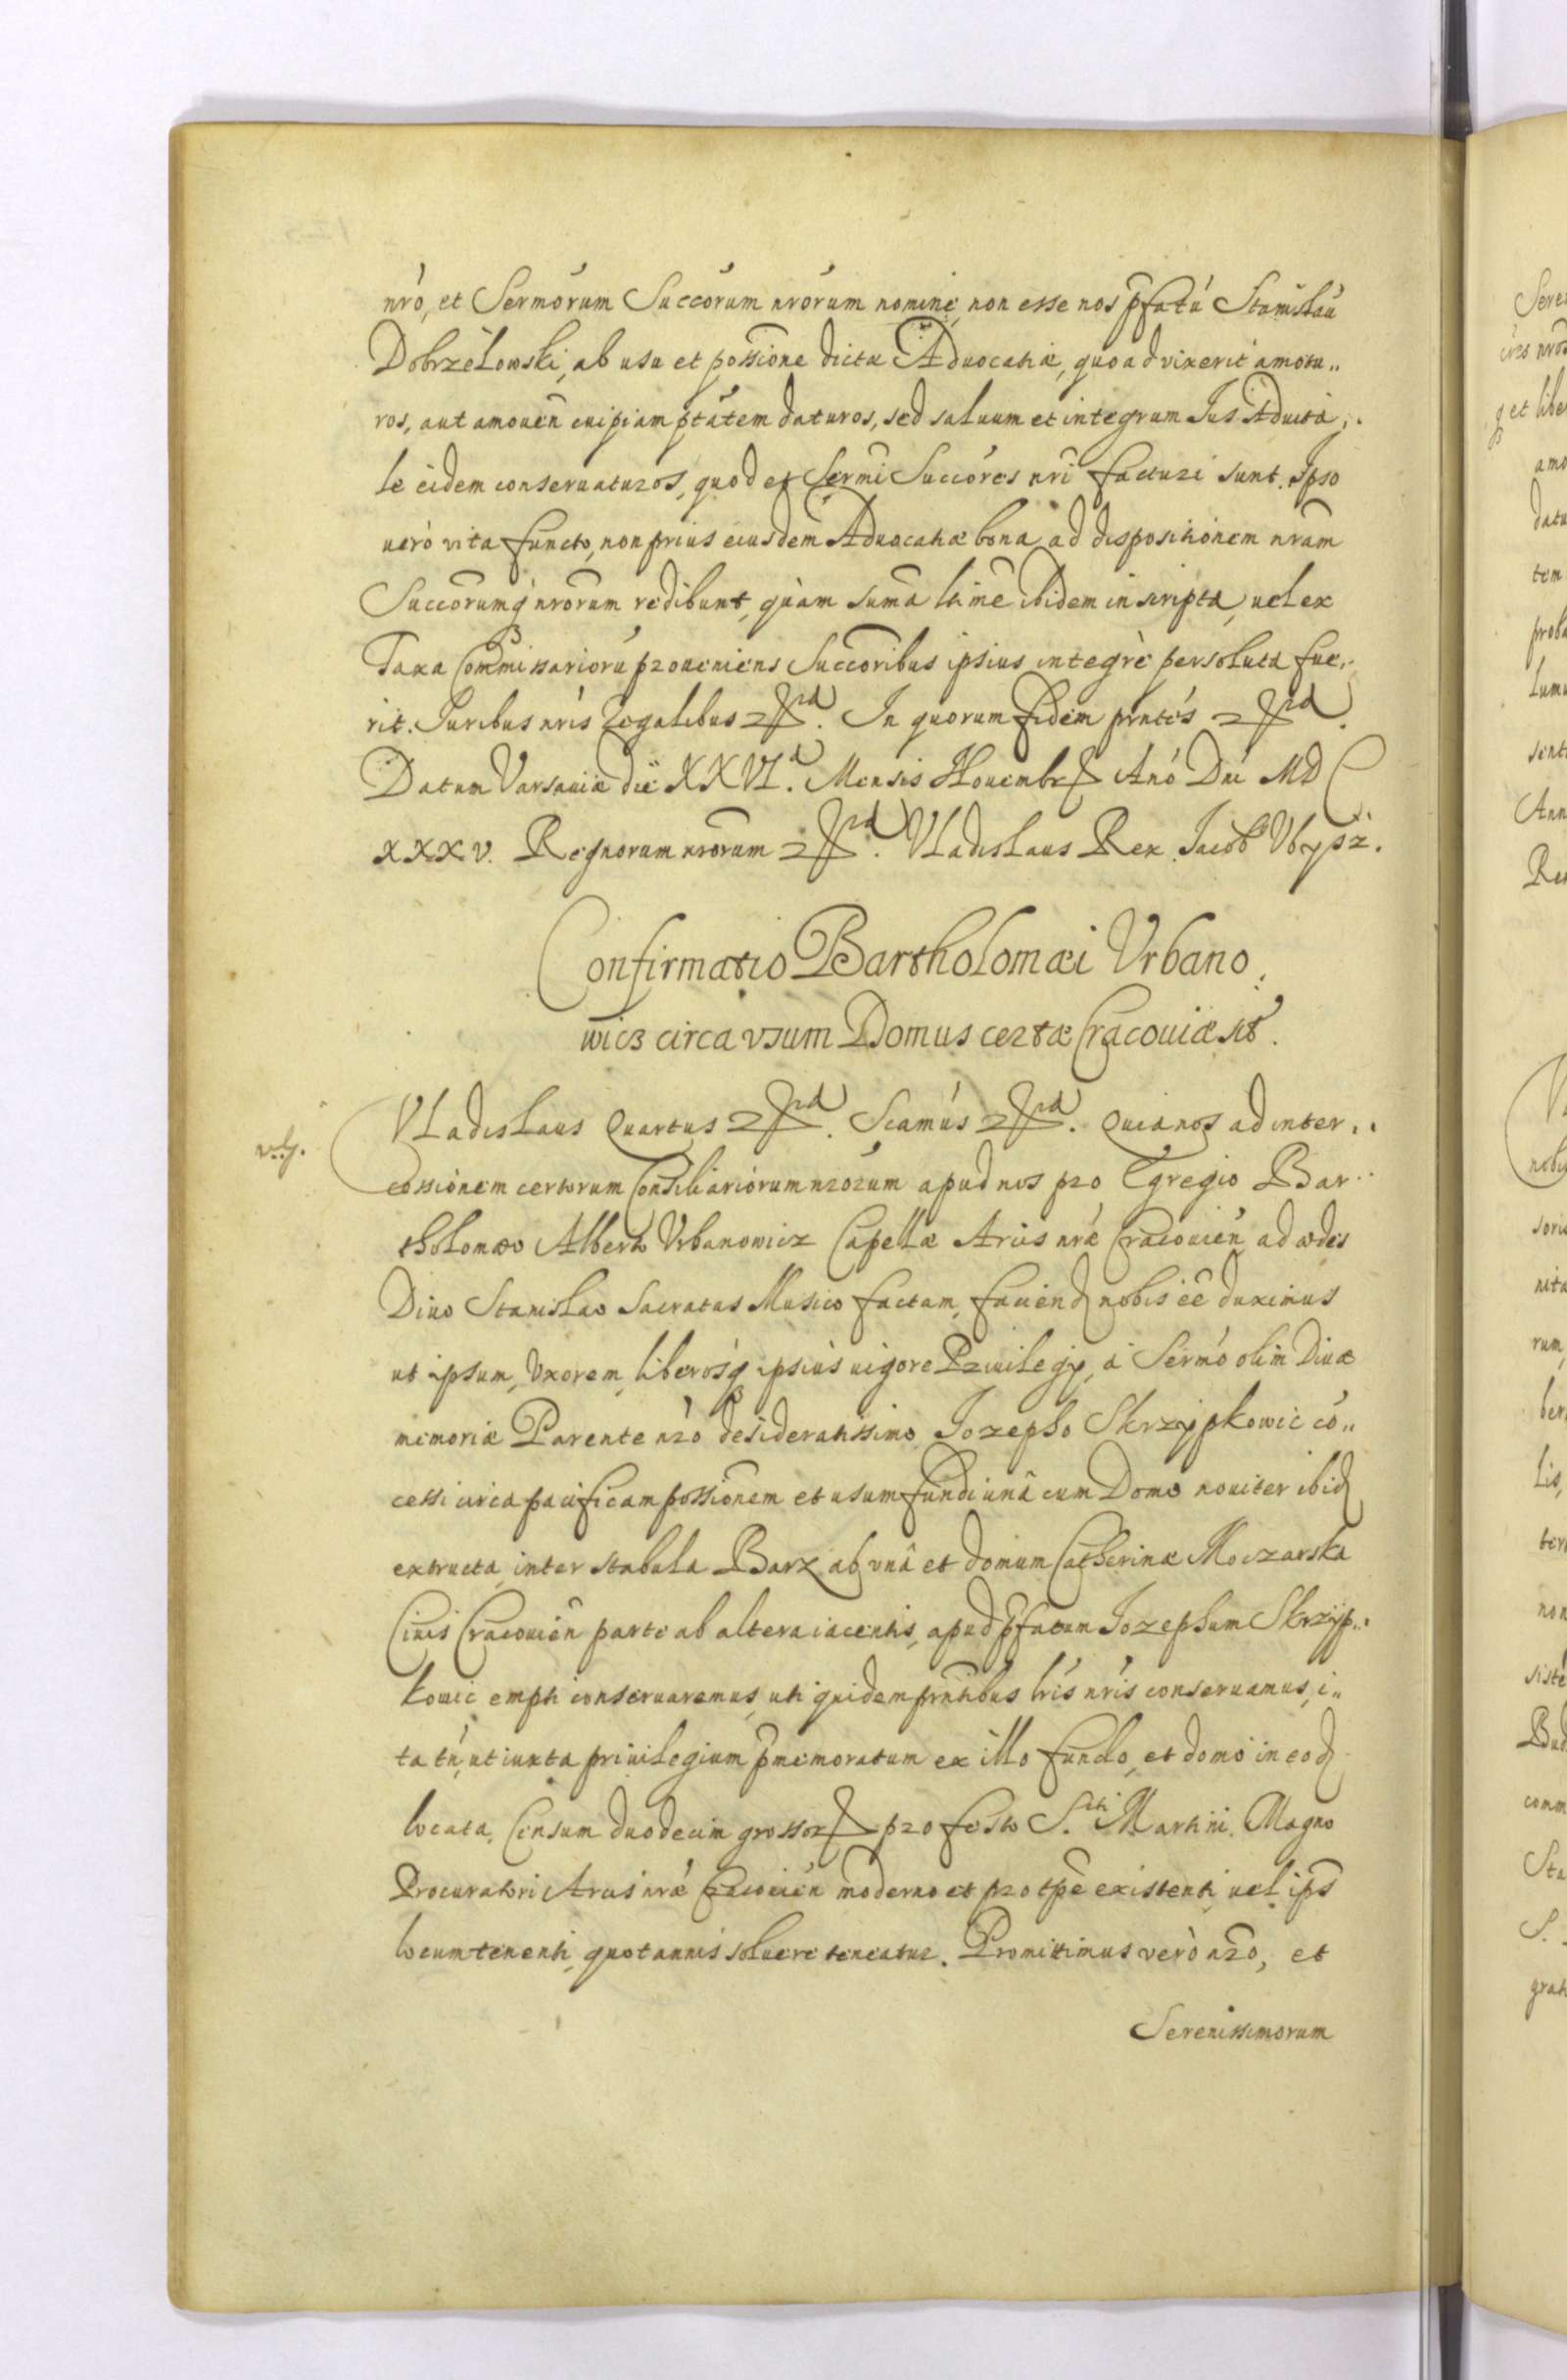 nrò, et Sermórum Succórum nrórum nomine, non esse nos pfatú Stanislaú
Dobrzelowski, ab usu et possione dictæ Aduocatiæ, quoad vixerit amotu„
ros, aut amouen̄ cuipiam ptátem daturos, sed saluum et integrum Jus Aduitá„
le eidem conseruaturos, quod et Sermi Succóres nri facturi sunt. Ipso
uerò vita functo, non prius eiusdem Aduocatiæ bona ad dispositionem nram
Succorumq nrorum redibunt, quàm suma ltime ibidem inscripta, uel ex
Taxa Commissariorú proueniens Succoribus ipsius integrè persoluta fue„
rit. Juribus nris Regalibus etc. In quorum fidem prntes etc.
Datum Varsauiæ die XXVI. Mensis Nouembr Anó Dni MDC
XXXV. Regnorum nrorum etc. Vladislaus Rex. Jacob Vbysz.
Confirmatio Bartholomæi Vrbano„
wicz circa vsum Domus certæ Cracouiæ sit.
Vladislaus Quartus etc. Scamús etc. Quia nos ad inter„
cessionem certorum Consiliariorum nrorum apud nos pro Egregio Bar„
tholomæo Alberto Vrbanowicz Capellæ Arcis nræ Cracouien̄ ad ædes
Diuo Stanislao sacratas Musico factam, faciend nobis ee duximus
ut ipsum, Vxorem, liberosq ipsius uigore Priuilegy, à Sermó olim Diuæ
memoriæ Parente nro desideratissimo Jozepho Skrzypkowic có„
cessi circa pacificam possionem et usum fundi unâ cum Domo nouiter ibid
extructa, inter stabula Barz ab vnâ et domum Catherinæ Moczarska
Ciuis Cracouien̄ parte ab altera iacentis, apud pfatum Jozephum Skrzyp„
kowic empti conseruaremus, uti quidem prntibus lris nris conseruamus, i„
ta tn, ut iuxta priuilegium pmemoratum ex illo fundo, et domo in eod
locata, Censum duodecim grossor pro festo S.cti Martini. Magno
Procuratori Arcis nræ Cracouien̄ moderno et pro tpe existenti, uel ips
locumtenenti, quotannis soluere teneatur. Promittimus verò nro, et
Serenissimorum